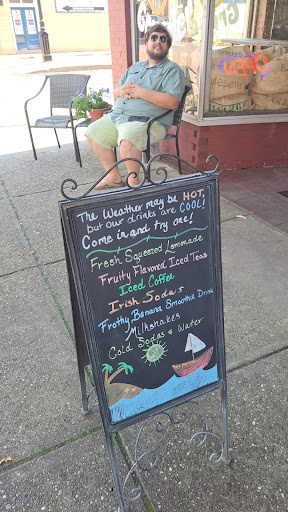 OPEN
The Weather may be HOT,
but our drinks are COOL!
Come in and try one!
Fresh Squeezed Lemonade
Fruity Flavored Iced Teas
Iced Coffee
Irish Sodas
Frothy Banana Smoothie Drink
Milkshakes
Cold Sodas & Water